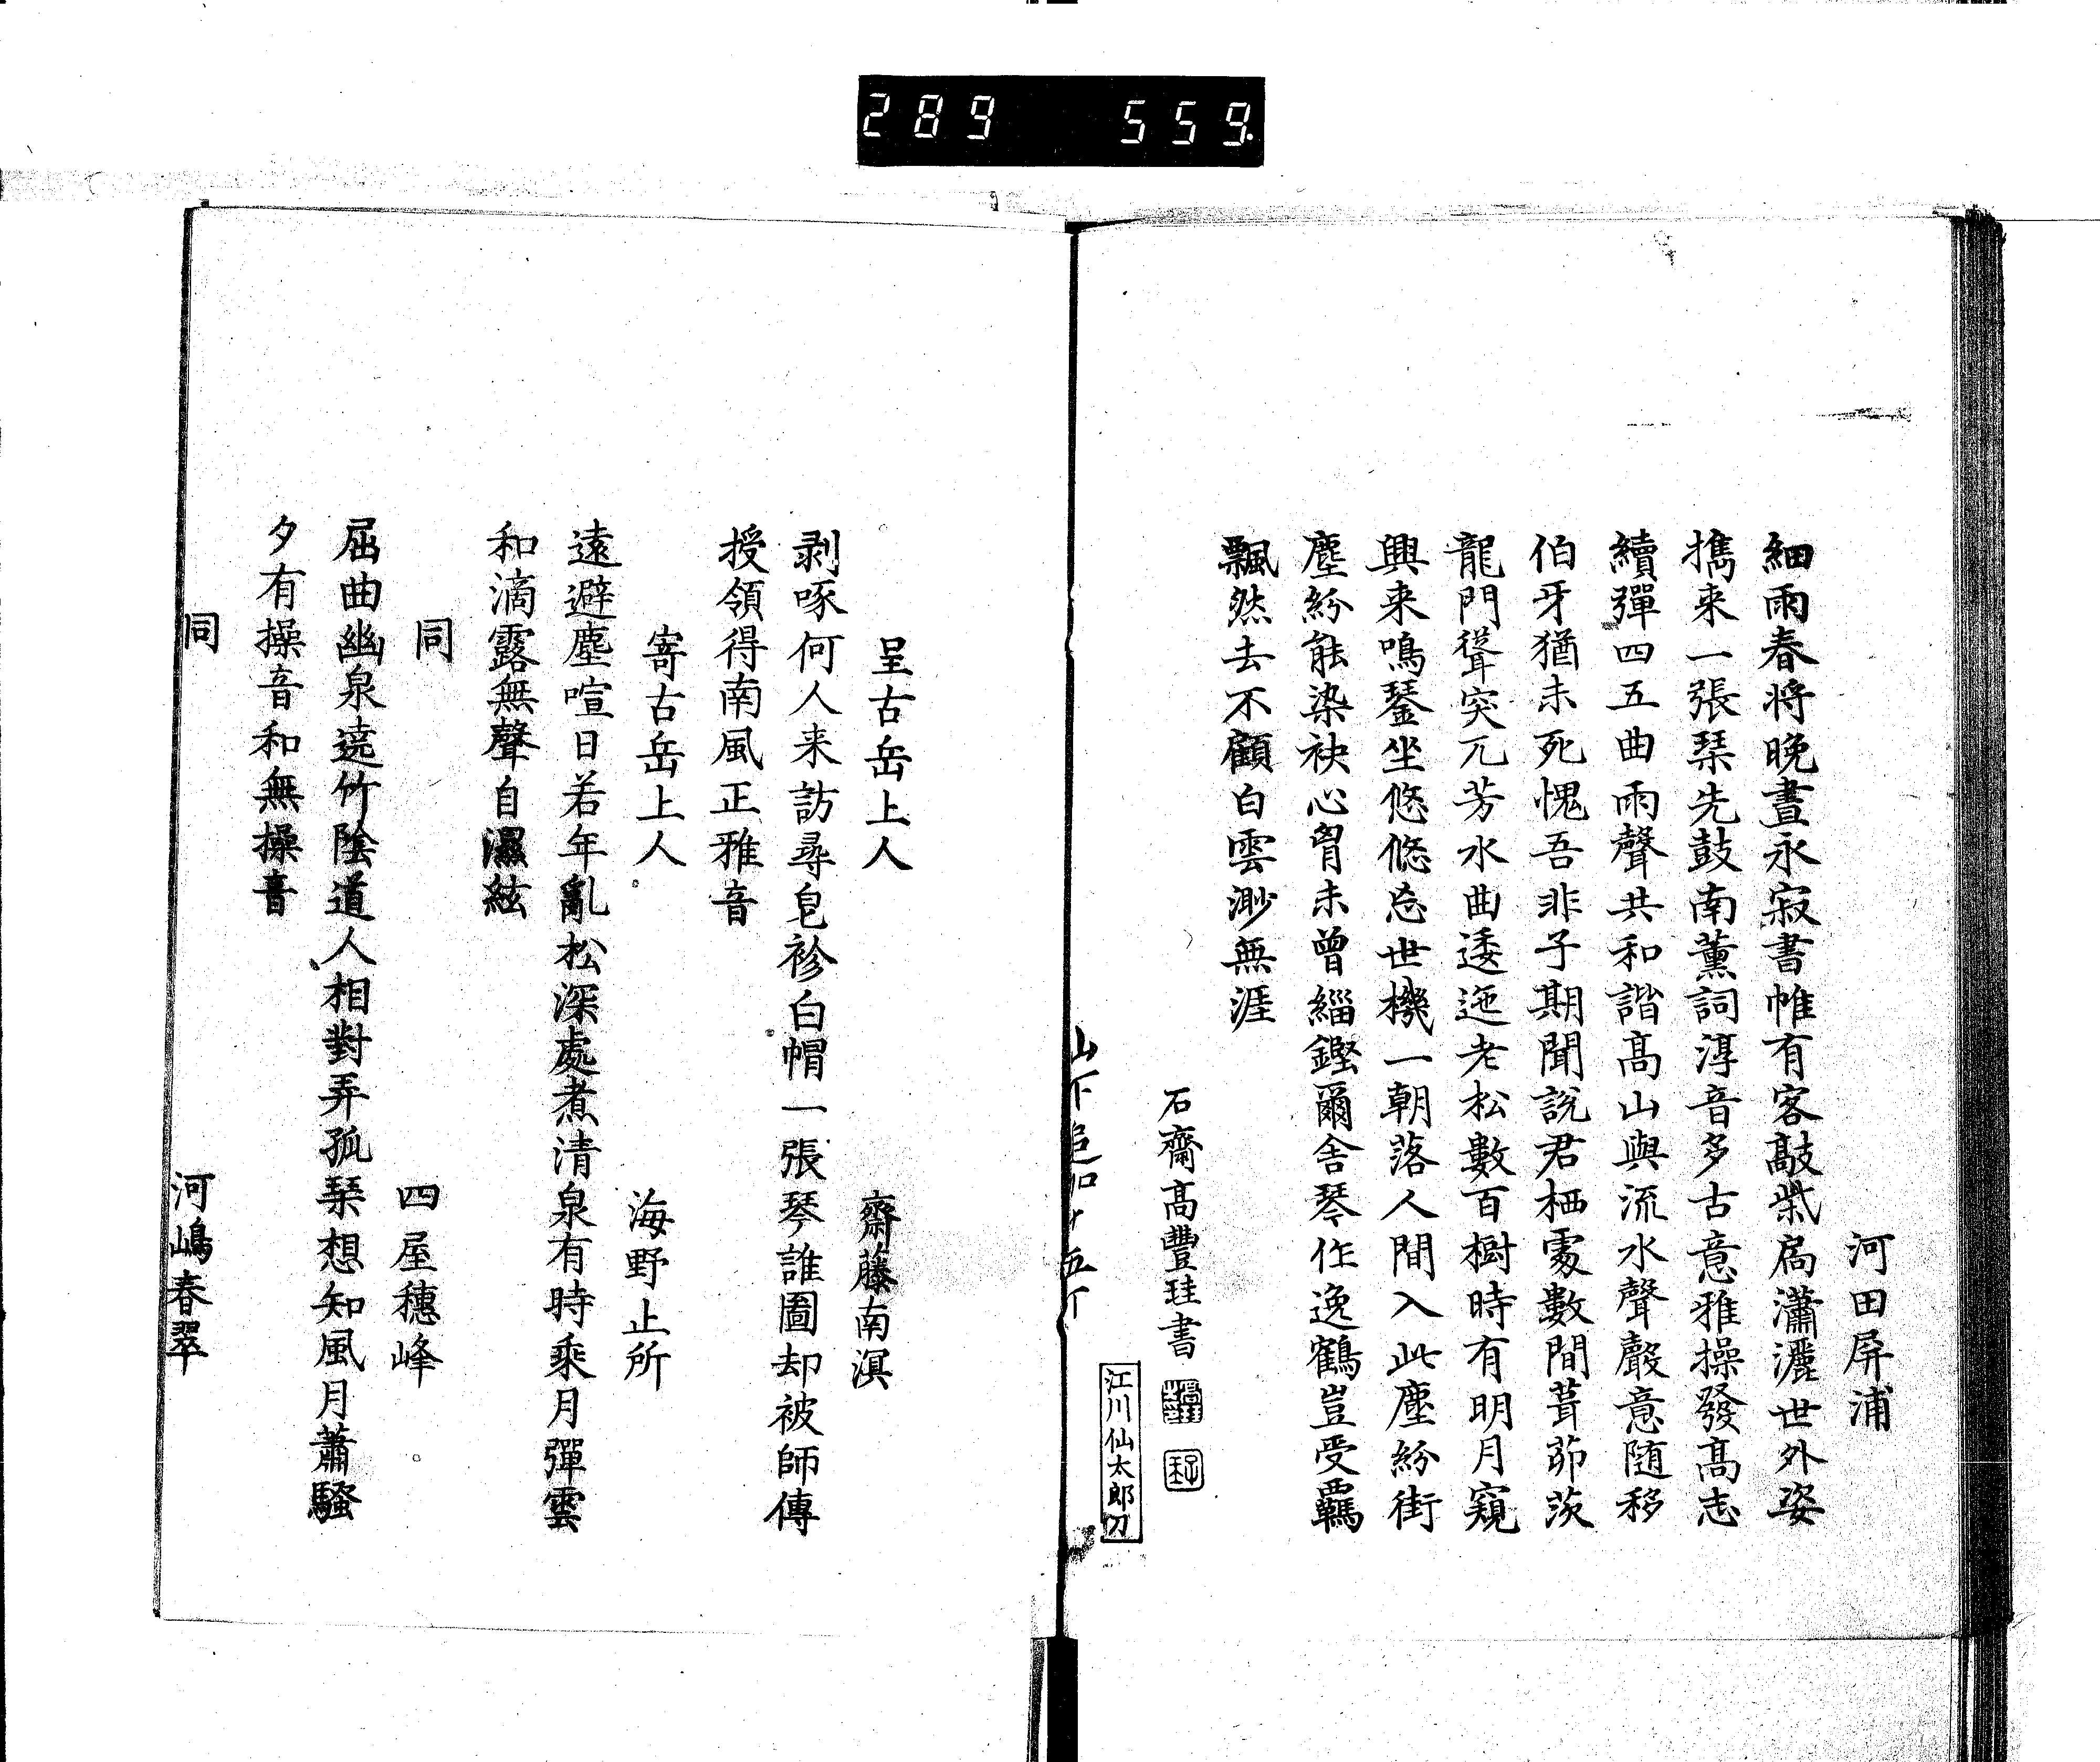 289 559.
河田屏浦
細雨春将晚晝永寂書帷有客敲柴扃瀟灑世外姿
携来一張琹先鼓南薰詞淳音多古意雅操發髙志
續彈四五曲雨聲共和諧髙山與流水聲聲意随移
伯牙猶未死愧吾非子期聞説君栖䖏數間葺茆茨
龍門聳突兀芳水曲逶迤老松數百樹時有明月窺
興来鳴琴坐悠悠忘世機一朝落人間入此塵紛街
塵紛能染袂心胷未曾緇鏗爾舍琴作逸鶴豈受羈
飄然去不顧白雲渺無涯
石齋髙豐珪書
江川仙太郎刀
呈古岳上人
齋藤南溟
剥啄何人来訪尋皀袗白帽一張琴誰圖却被師傳
授領得南風正雅音
寄古岳上人
海野止所
遠避塵喧日若年亂松深處煮清泉有時乘月彈雲
和滴露無聲自濕絃
同
四屋穗峰
屈曲幽泉遶竹陰道人相對弄孤琹想知風月蕭騷
夕有操音和無操音
同
河嶋春翠